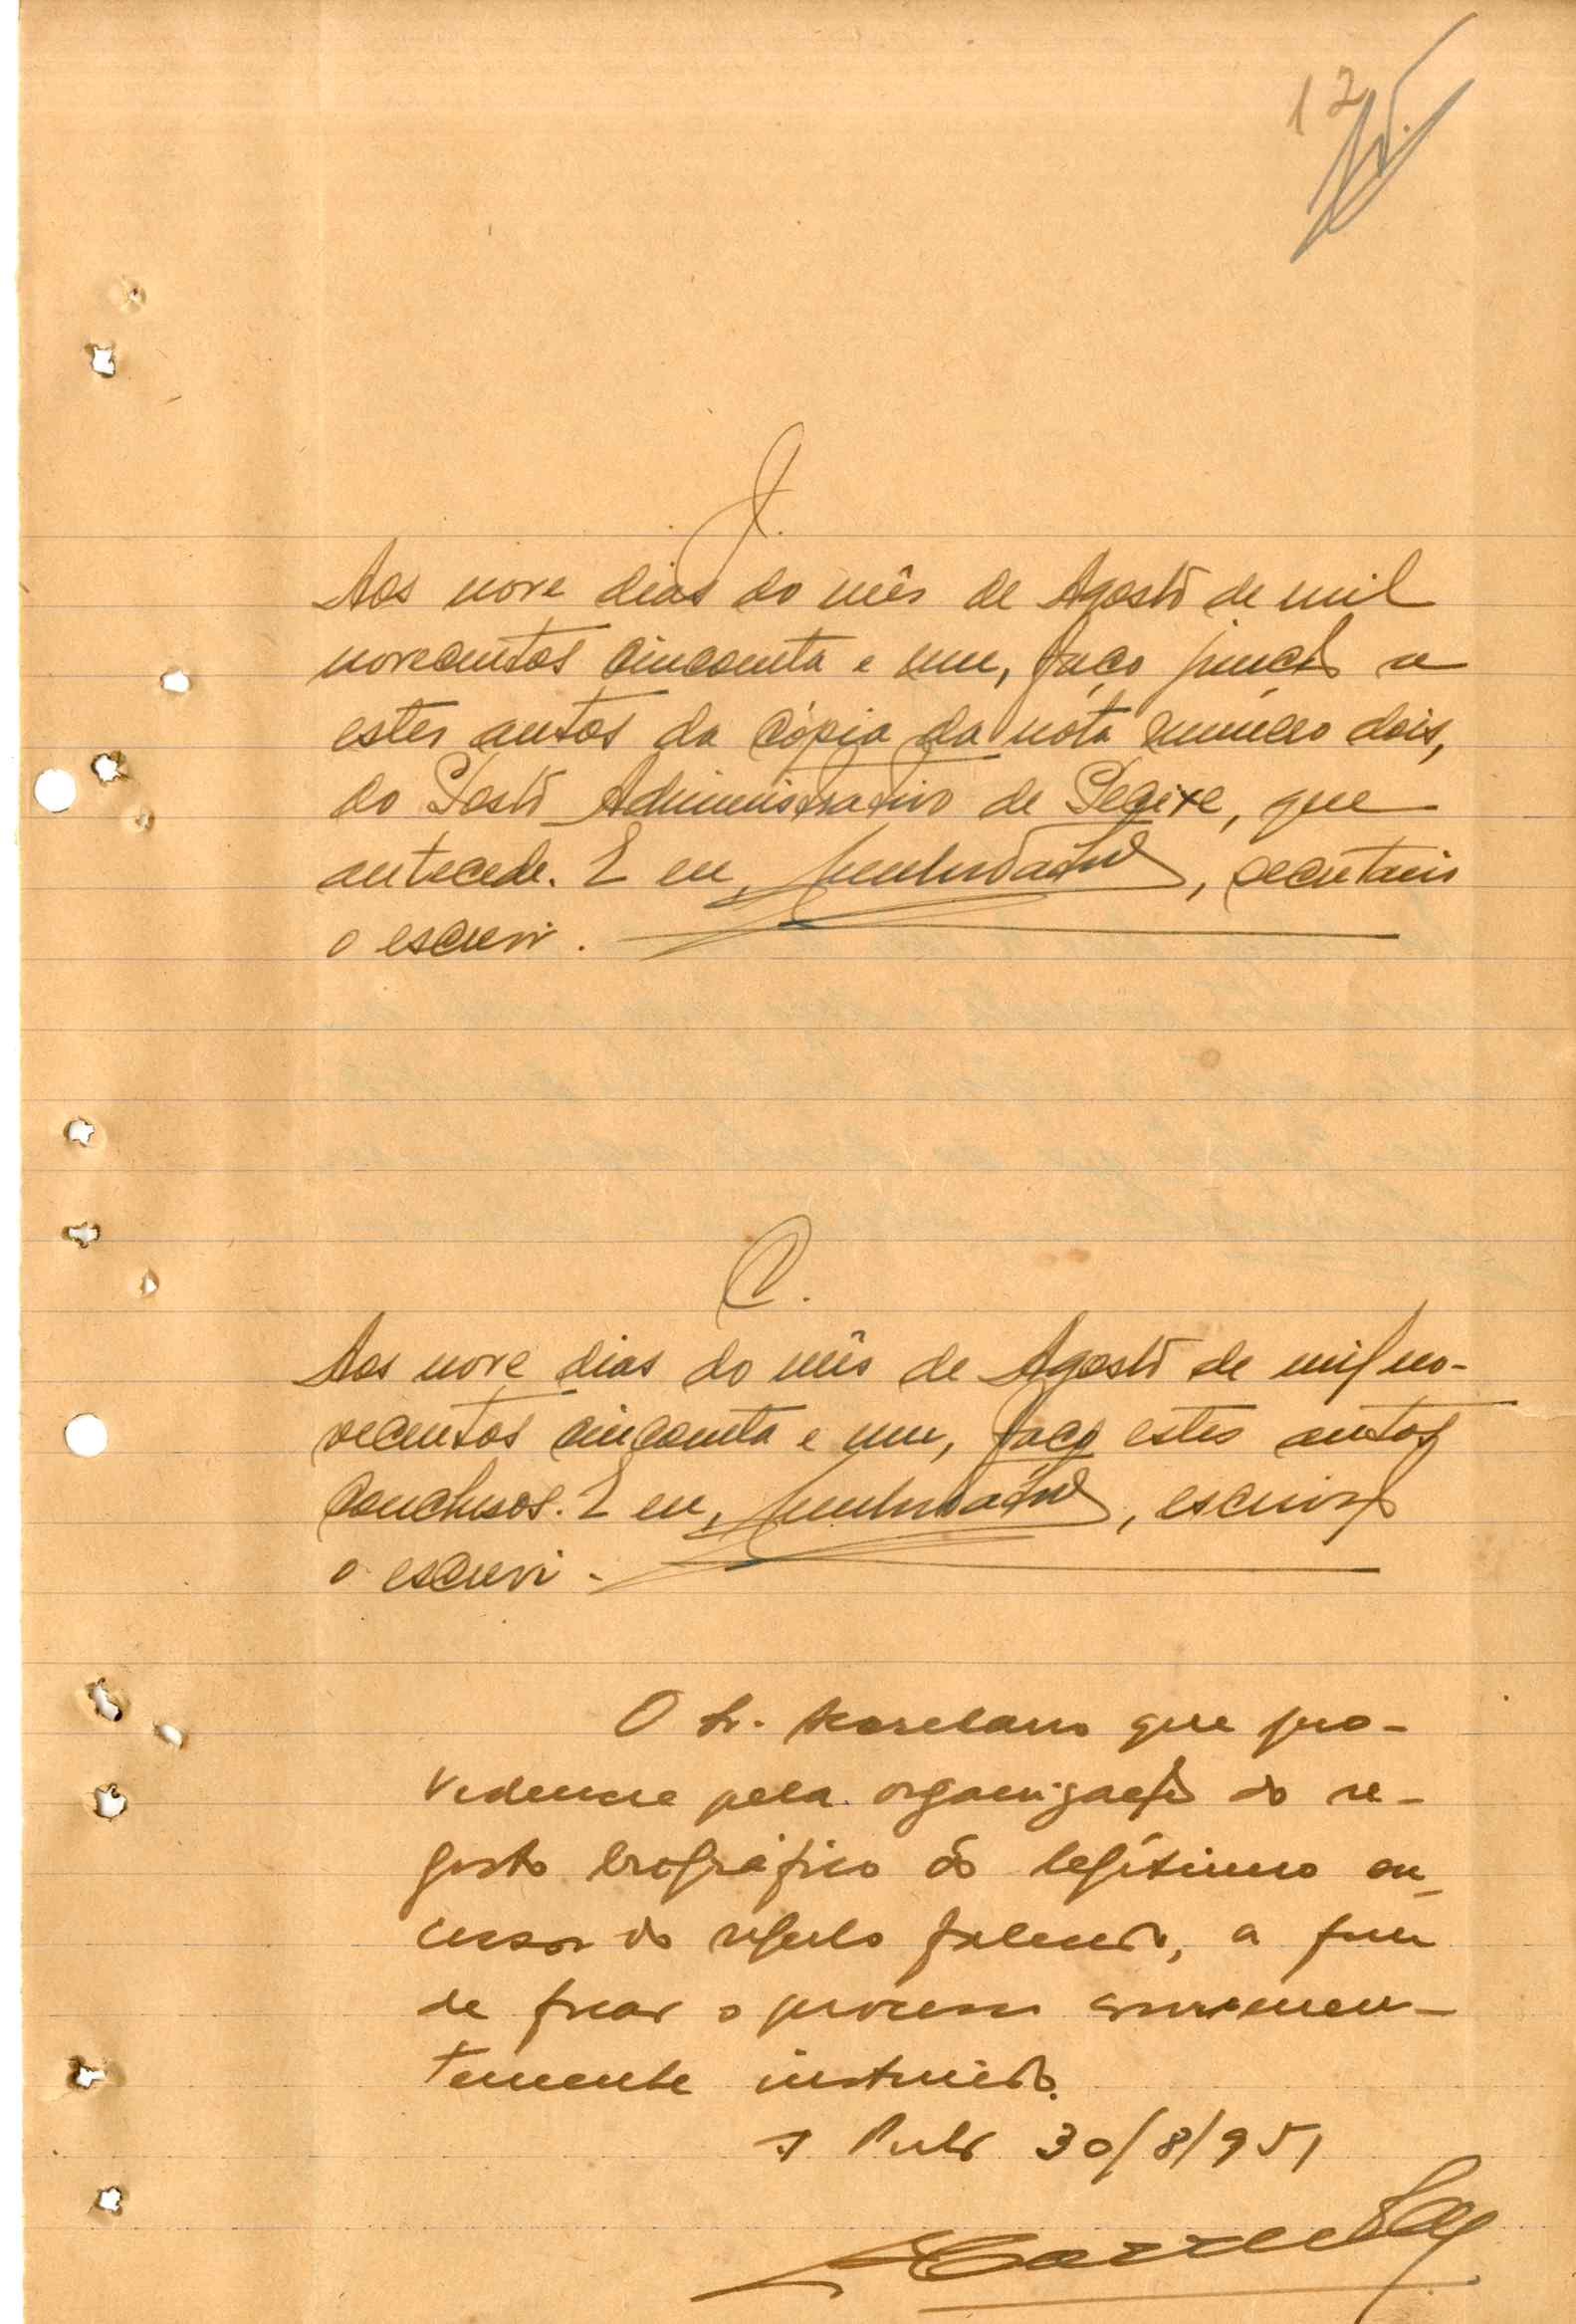 12
J.
Aos nove dias do mês de Agosto de mil
novecentos cincoenta e um, faço junção a
estes autos da cópia da nóta número dois,
do Posto Administrativo de Pecixe, que
antecede. E eu, secretario
o escrevi.
C.
Aos nove dias do mês de Agosto de mil no-
vecentos cincoenta e um, faço estes autos
conclusos. E eu, escrivão
o escrevi.
O Sr. que pro-
videncie pela organização do re-
gisto biográfico do legítimo su-
cessor do régulo falecido, a fim
de ficar o processo convenien-
temente instruido.
30/8/951